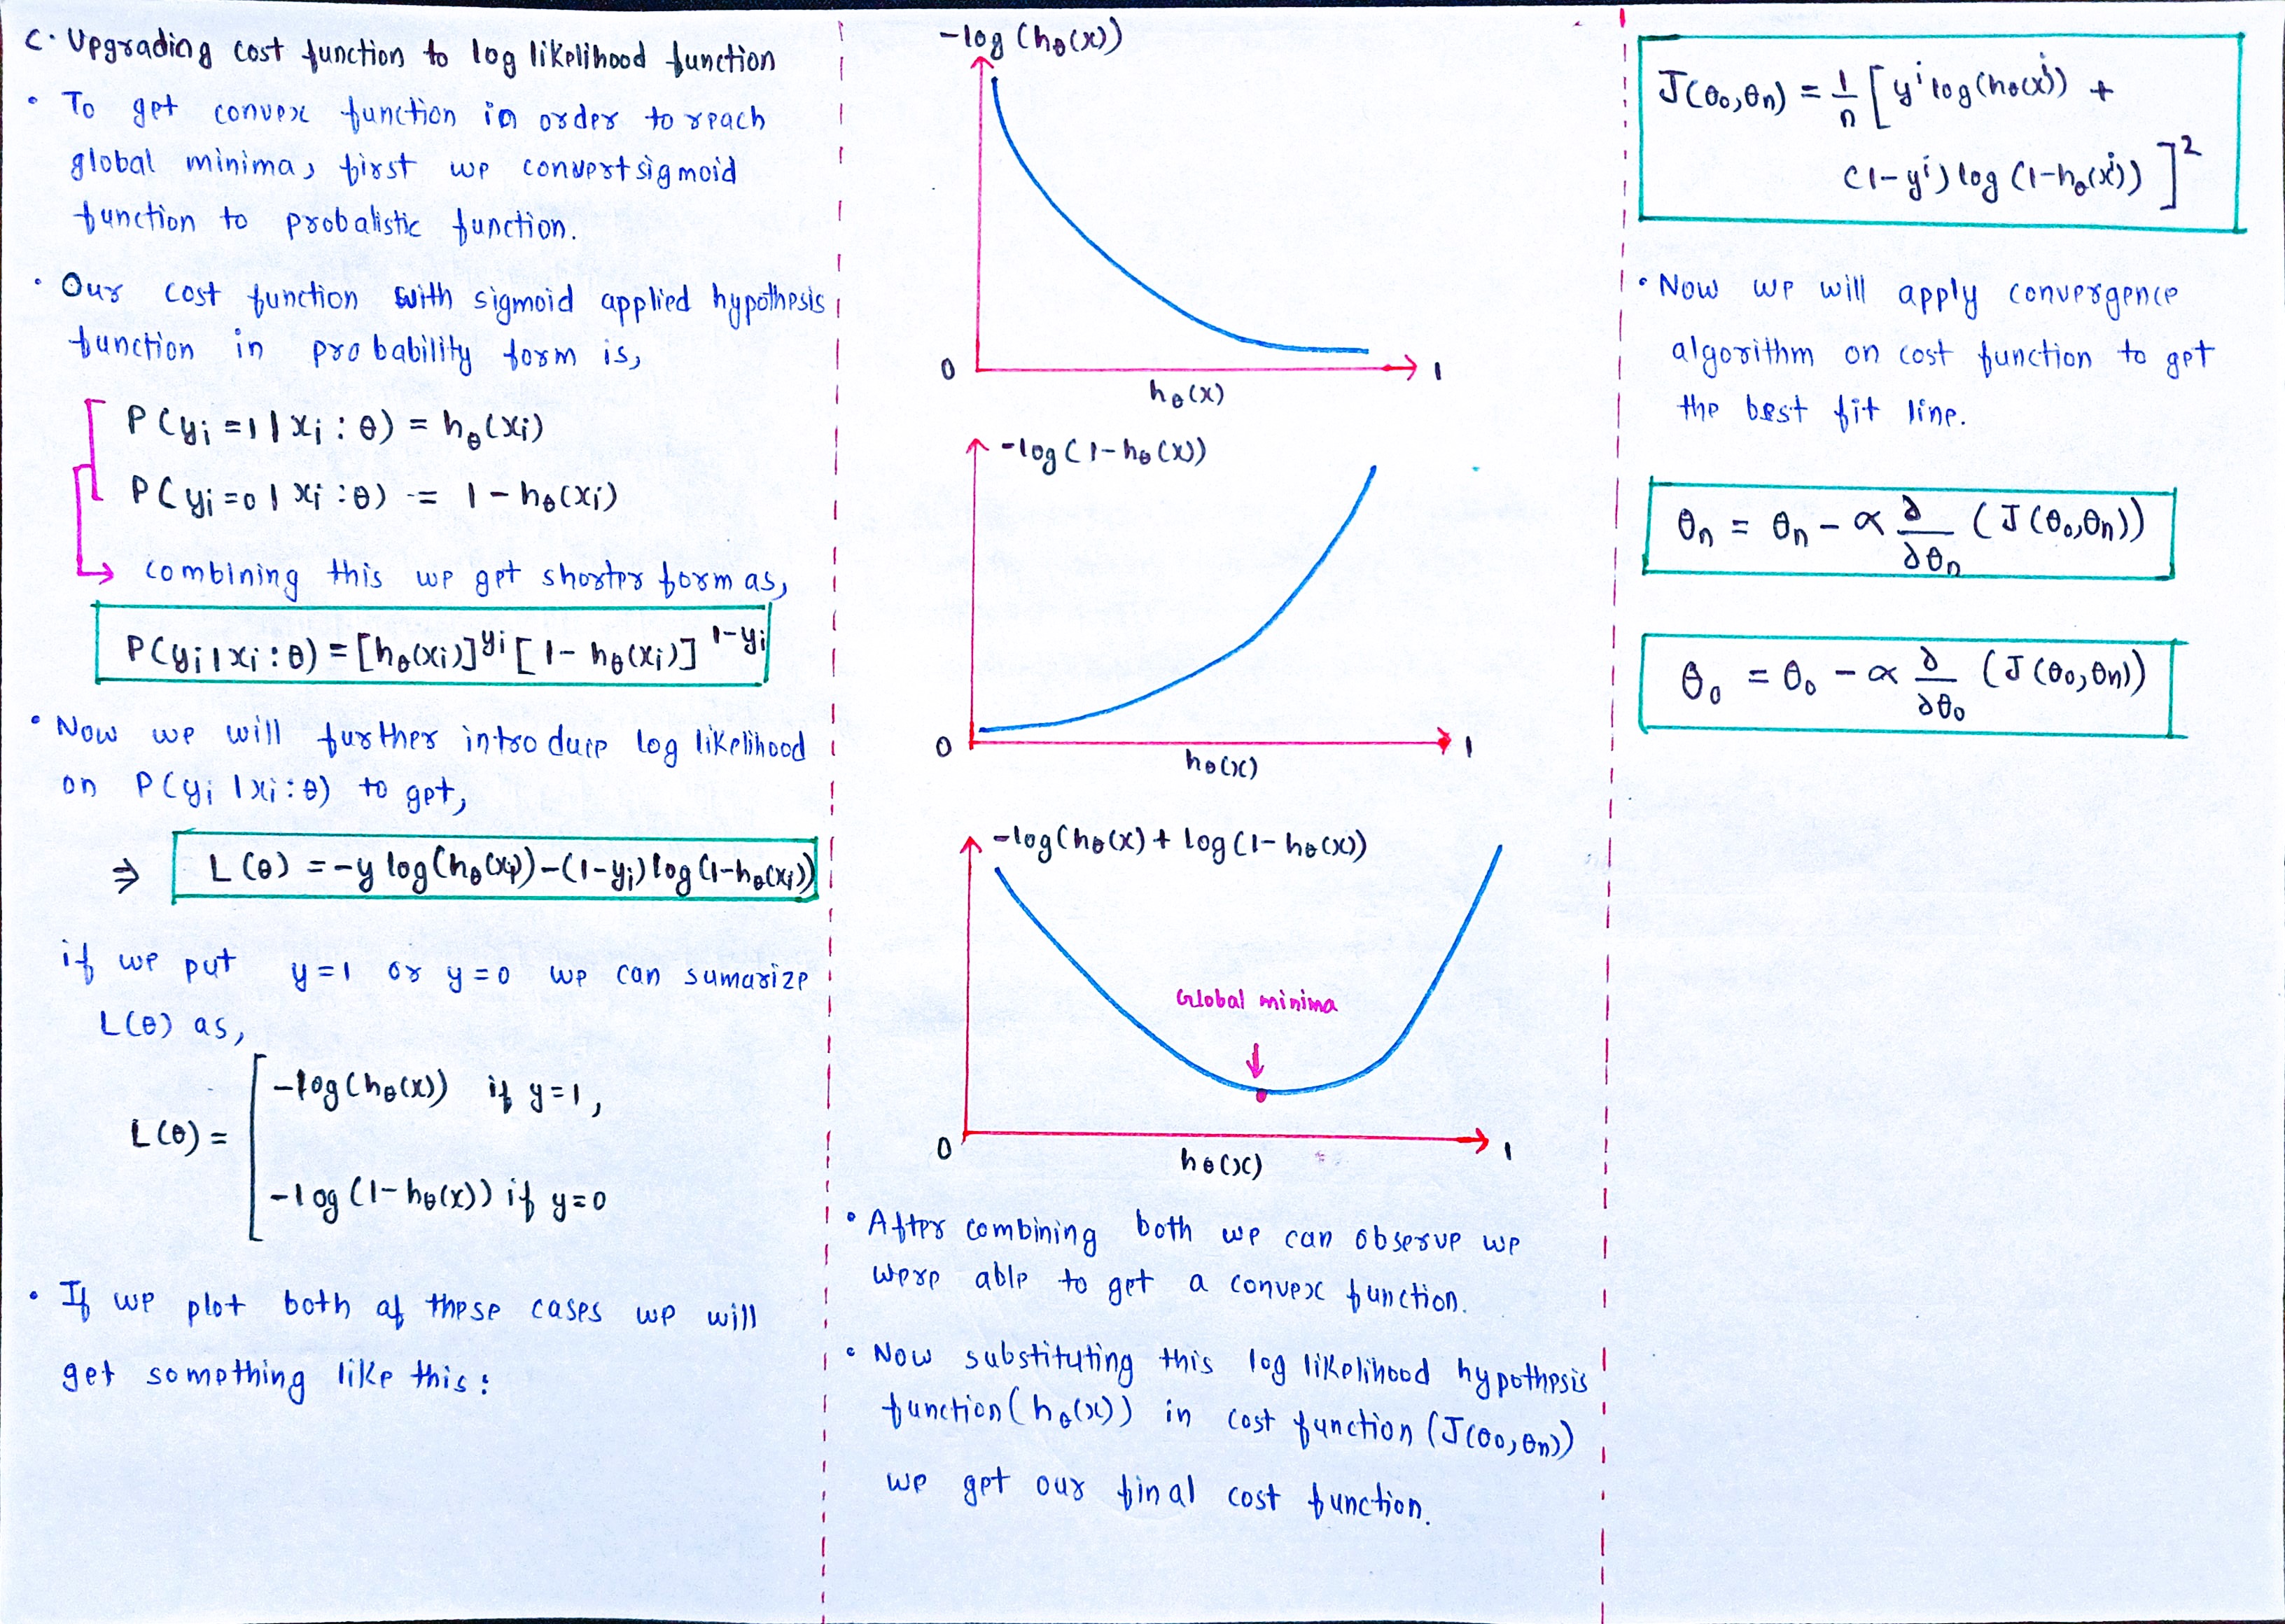 C. Upgrading cost function to log likelihood function
• To get convex function in order to reach
global minima, first we convert sigmoid
function to probalistic function.
• Our cost function with sigmoid applied hypothesis
function in probability form is,
P(yi = 1 | xi : θ) = hθ(xi)
P(yi = 0 | xi : θ) = 1 - hθ(xi)
combining this we get shorter form as,
P(yi | xi : θ) = [hθ(xi)]^yi [1 - hθ(xi)]^1-yi
• Now we will further introduce log likelihood
on P(yi | xi : θ) to get,
⇒ L(θ) = -y log(hθ(xi)) - (1-yi) log(1-hθ(xi))
if we put y=1 or y=0 we can sumarize
L(θ) as,
-log(hθ(x)) if y=1,
L(θ) =
-log(1-hθ(x)) if y=0
• If we plot both of these cases we will
get something like this:
-log(hθ(x))
0 1
hθ(x)
-log(1-hθ(x))
0 1
hθ(x)
-log(hθ(x) + log(1-hθ(x))
Global minima
0 1
hθ(x)
• After combining both we can observe we
were able to get a convex function.
• Now substituting this log likelihood hypothesis
function (hθ(x)) in cost function (J(θ0,θn))
we get our final cost function.
J(θ0,θn) = 1/n [ y^i log(hθ(x^i)) +
(1-y^i) log(1-hθ(x^i)) ]^2
• Now we will apply convergence
algorithm on cost function to get
the best fit line.
θn = θn - α ∂/∂θn (J(θ0,θn))
θ0 = θ0 - α ∂/∂θ0 (J(θ0,θn))